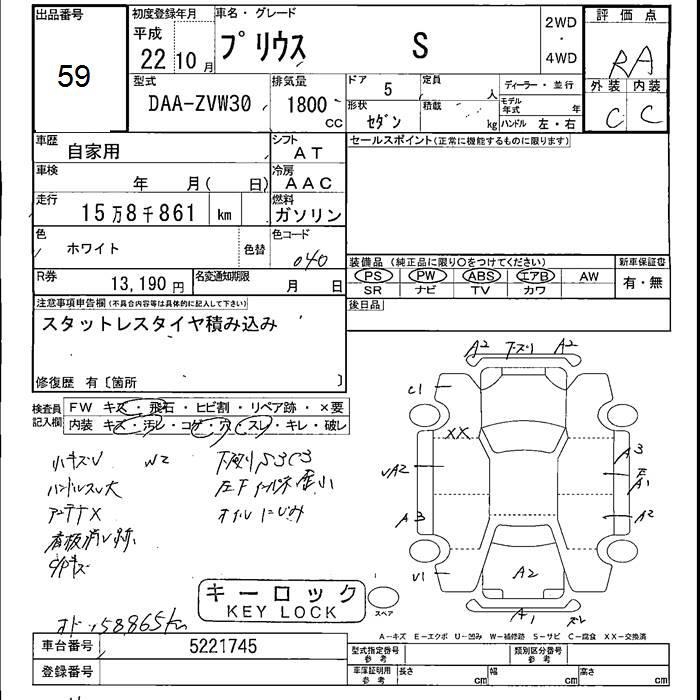 出品番号
59
初度登録年月
平成
22 10 月
車名・グレード
プリウス S
2WD
・
4WD
評価点
RA
外装 内装
C C
型式
DAA-ZVW30
排気量
1800 CC
ドア 5
定員 人
形状 セダン
積載 kg
ディーラー・並行
モデル年式 年
ハンドル 左・右
車歴
自家用
シフト
AT
セールスポイント(正常に機能するものに限ります)
車検
年 月( 日)
冷房
AAC
走行
15万8千861 km
燃料
ガソリン
色
ホワイト
色替
色コード
040
装備品(純正品に限り〇をつけてください)
PS PW ABS エアB AW
SR ナビ TV カワ
新車保証書
有・無
R券
13,190 円
名変通知期限
月 日
後日品
注意事項申告欄(不具合内容等は具体的に記入して下さい)
スタットレスタイヤ積み込み
修復歴 有〔箇所 〕
検査員記入欄
FW キズ・飛石・ヒビ割・リペア跡・×要
内装 キズ・汚レ・コゲ・穴・スレ・キレ・破レ
小キズU W2 下廻りS3C3
ハンドルスレ大
アンテナX オイルにじみ
看板消し跡
オド 158,865km
A2 下スリ A2
C1
XX
UA2
A3
A3
E
A1
A2
U1
A2
A1 スレ
キーロック
KEY LOCK
スペア
A-キズ E-エクボ U-凹み W-補修跡 S-サビ C-腐食 XX-交換済
車台番号
5221745
登録番号
型式指定番号 参考
類別区分番号 参考
車庫証明用 参考
長さ cm
幅 cm
高さ cm